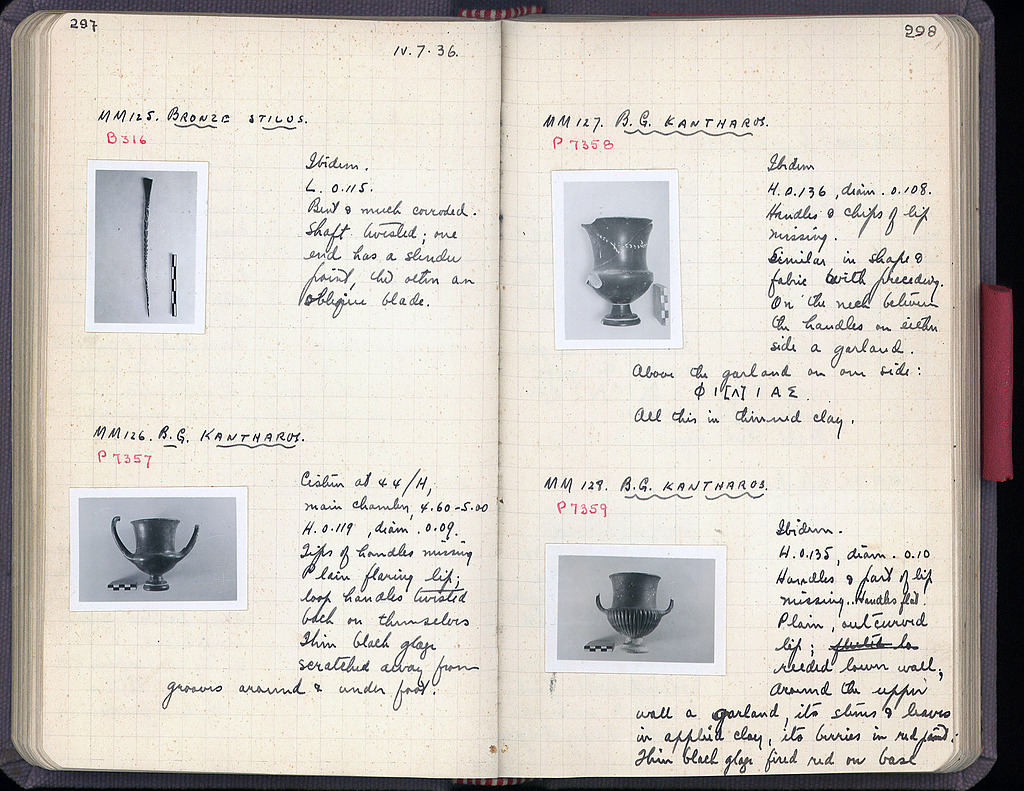 297
IV.7.36.
MM125. BRONZE STILUS.
B316
Ibidem.
L. 0.115.
Bent & much corroded.
Shaft twisted; one
end has a slender
point, the other an
oblique blade.
MM126. B.G. KANTHAROS.
P7357
Cistern at 44/H,
main chamber, 4.60-5.00
H. 0.119, diam. 0.09.
Tips of handles missing
Plain flaring lip;
loop handles twisted
back on themselves
Thin black glaze
scratched away from
grooves around & under foot.
298
MM127. B.G. KANTHAROS.
P7358
Ibidem
H. 0.136, diam. 0.108.
Handles & chips of lip
missing.
Similar in shape &
fabric with preceding.
On the neck between
the handles on either
side a garland.
Above the garland on one side:
Φ Ι [Λ] Ι Α Σ.
All this in thinned clay.
MM 128. B.G. KANTHAROS.
P7359
Ibidem.
H. 0.135, diam. 0.10
Handles & part of lip
missing. Handles flat.
Plain, outcurved
lip;
reeded lower wall;
around the upper
wall a garland, its stems & leaves
in applied clay, its berries in red paint.
Thin black glaze fired red on base